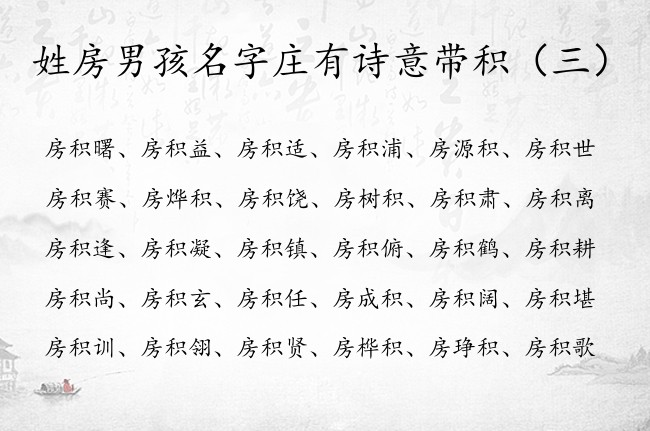 姓房男孩名字庄有诗意带积（三）
房积曙、房积益、房积适、房积浦、房源积、房积世
房积赛、房烨积、房积饶、房树积、房积肃、房积离
房积逢、房积凝、房积镇、房积俯、房积鹤、房积耕
房积尚、房积玄、房积任、房成积、房积阔、房积堪
房积训、房积翎、房积贤、房桦积、房琤积、房积歌